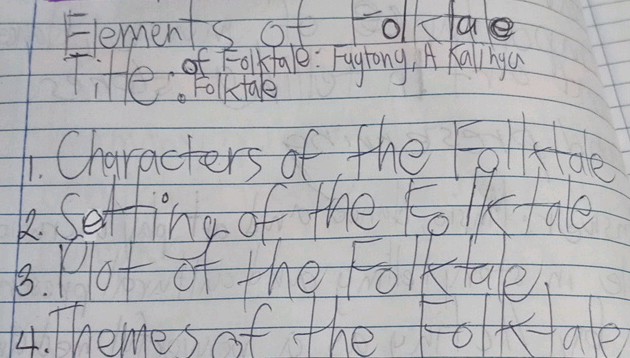 Elements of Folktale
Title: of Folktale: Fuytong, A Kalinga
Folktale
1. Characters of the Folktale
2. Setting of the Folktale
3. Plot of the Folktale.
4. Themes of the Folktale